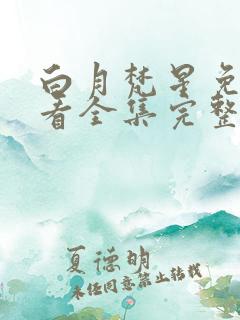 白月梵星免
看全集完整
夏德明
未经同意禁止转载